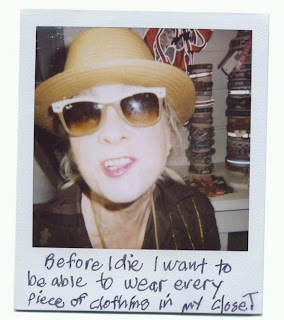 Before I die I want to
be able to wear every
piece of clothing in my closet